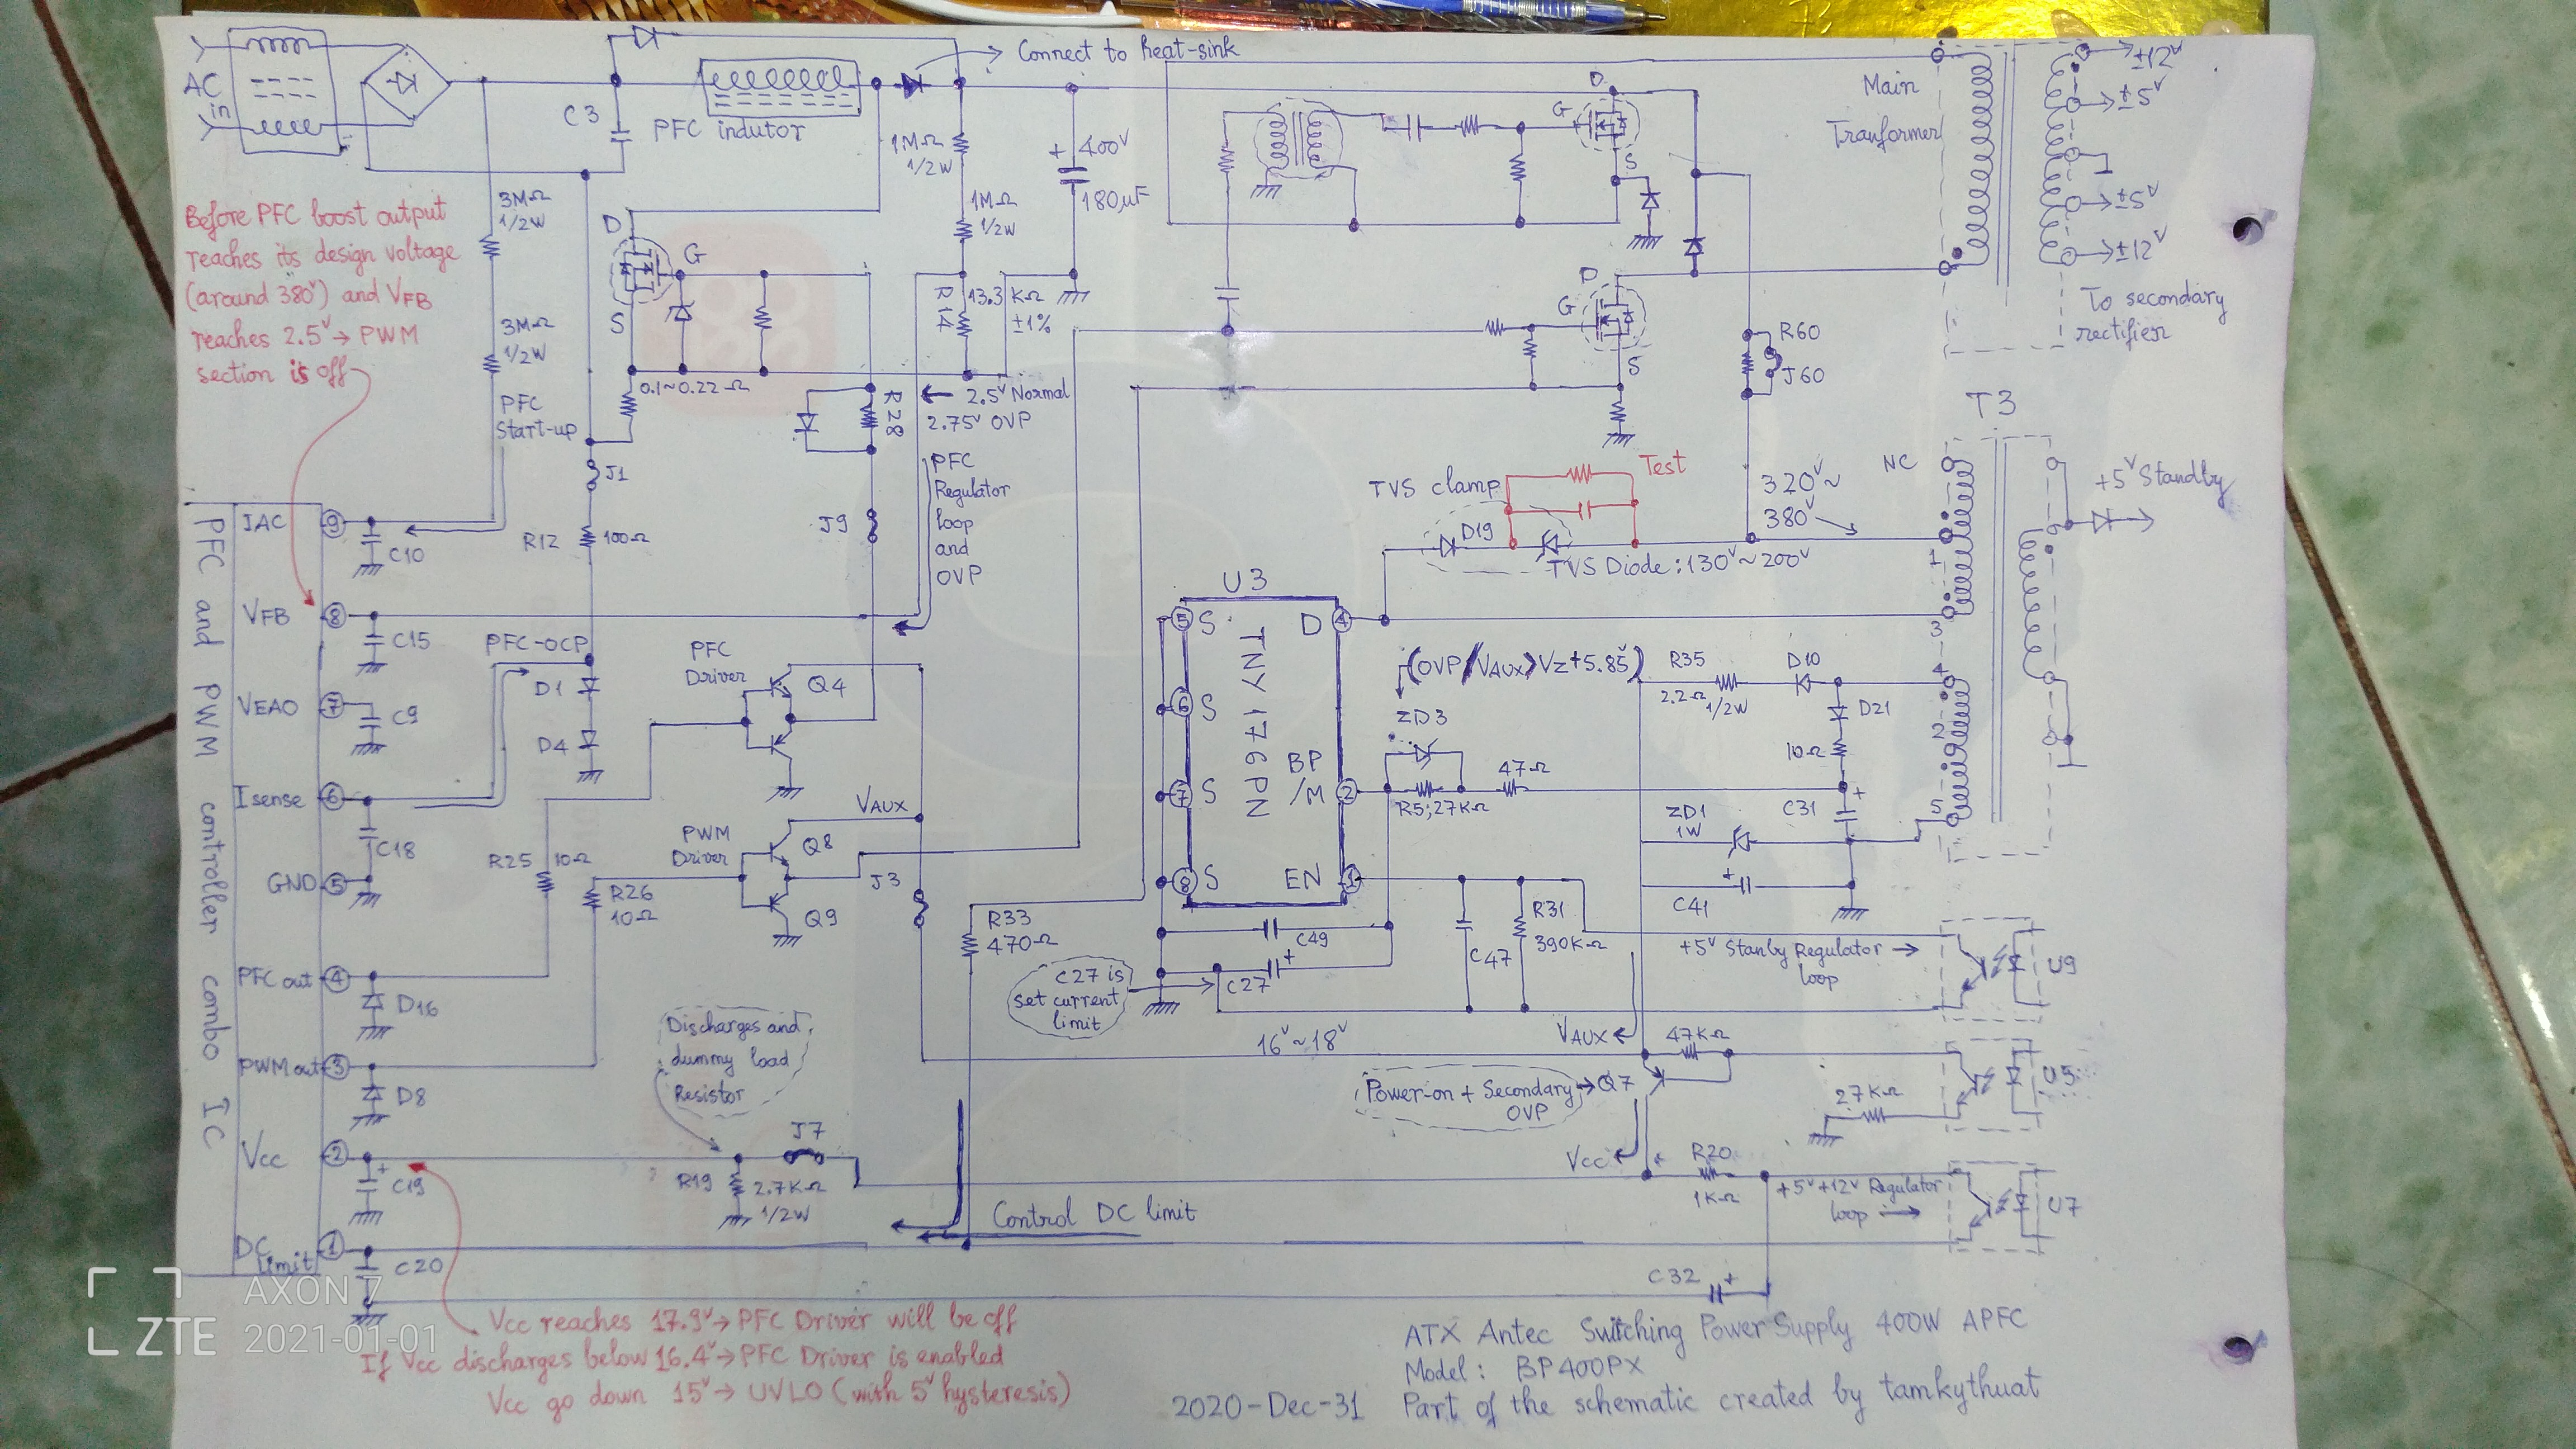 AC
in
C3
PFC indutor
Connect to heat-sink
1MΩ
1/2W
1MΩ
1/2W
+ 400V
180µF
3MΩ
1/2W
3MΩ
1/2W
PFC
Start-up
Before PFC boost output
reaches its design voltage
(around 380V) and VFB
reaches 2.5V → PWM
section is off
D
G
S
0.1~0.22Ω
R14
13.3 KΩ
±1%
R28
2.5V Normal
2.75V OVP
PFC
Regulator
loop
and
OVP
J1
R12
100Ω
J9
D
G
S
D
G
S
Main
Tranformer
±12V
±5V
±5V
±12V
To secondary
rectifier
R60
J60
T3
NC
320V~
380V
+5V Standby
Test
TVS clamp
D19
TVS Diode: 130V~200V
1
3
4
2
5
PFC and PWM controller combo IC
IAC
9
C10
VFB
8
C15
VEAO
7
C9
Isense
6
C18
GND
5
PFC out
4
D16
PWM out
3
D8
Vcc
2
+
C19
DC
limit
1
C20
PFC-OCP
D1
D4
PFC
Driver
Q4
VAUX
PWM
Driver
Q8
Q9
R25
10Ω
R26
10Ω
J3
R33
470Ω
U3
TNY176PN
5
S
6
S
7
S
8
S
D
4
BP
/M
2
EN
1
(OVP/VAUX>VZ+5.85V)
ZD3
R5;27KΩ
47Ω
R35
2.2Ω
1/2W
D10
D21
10Ω
C31
+
ZD1
1W
+
C41
C49
+
C27
C27 is
set current
limit
C47
R31
390KΩ
+5V Stanby Regulator →
loop
U9
VAUX
16V~18V
47KΩ
Power-on + Secondary
OVP
Q7
27KΩ
U5
Discharges and
dummy load
Resistor
J7
R19
2.7KΩ
1/2W
Vcc
R20
1KΩ
+5V+12V Regulator
loop →
U7
Control DC limit
C32
+
Vcc reaches 17.9V → PFC Driver will be off
If Vcc discharges below 16.4V → PFC Driver is enabled
Vcc go down 15V → UVLO (with 5V hysteresis)
ATX Antec Switching Power Supply 400W APFC
Model: BP400PX
2020-Dec-31 Part of the schematic created by tamkythuat
AXON 7
ZTE 2021-01-01